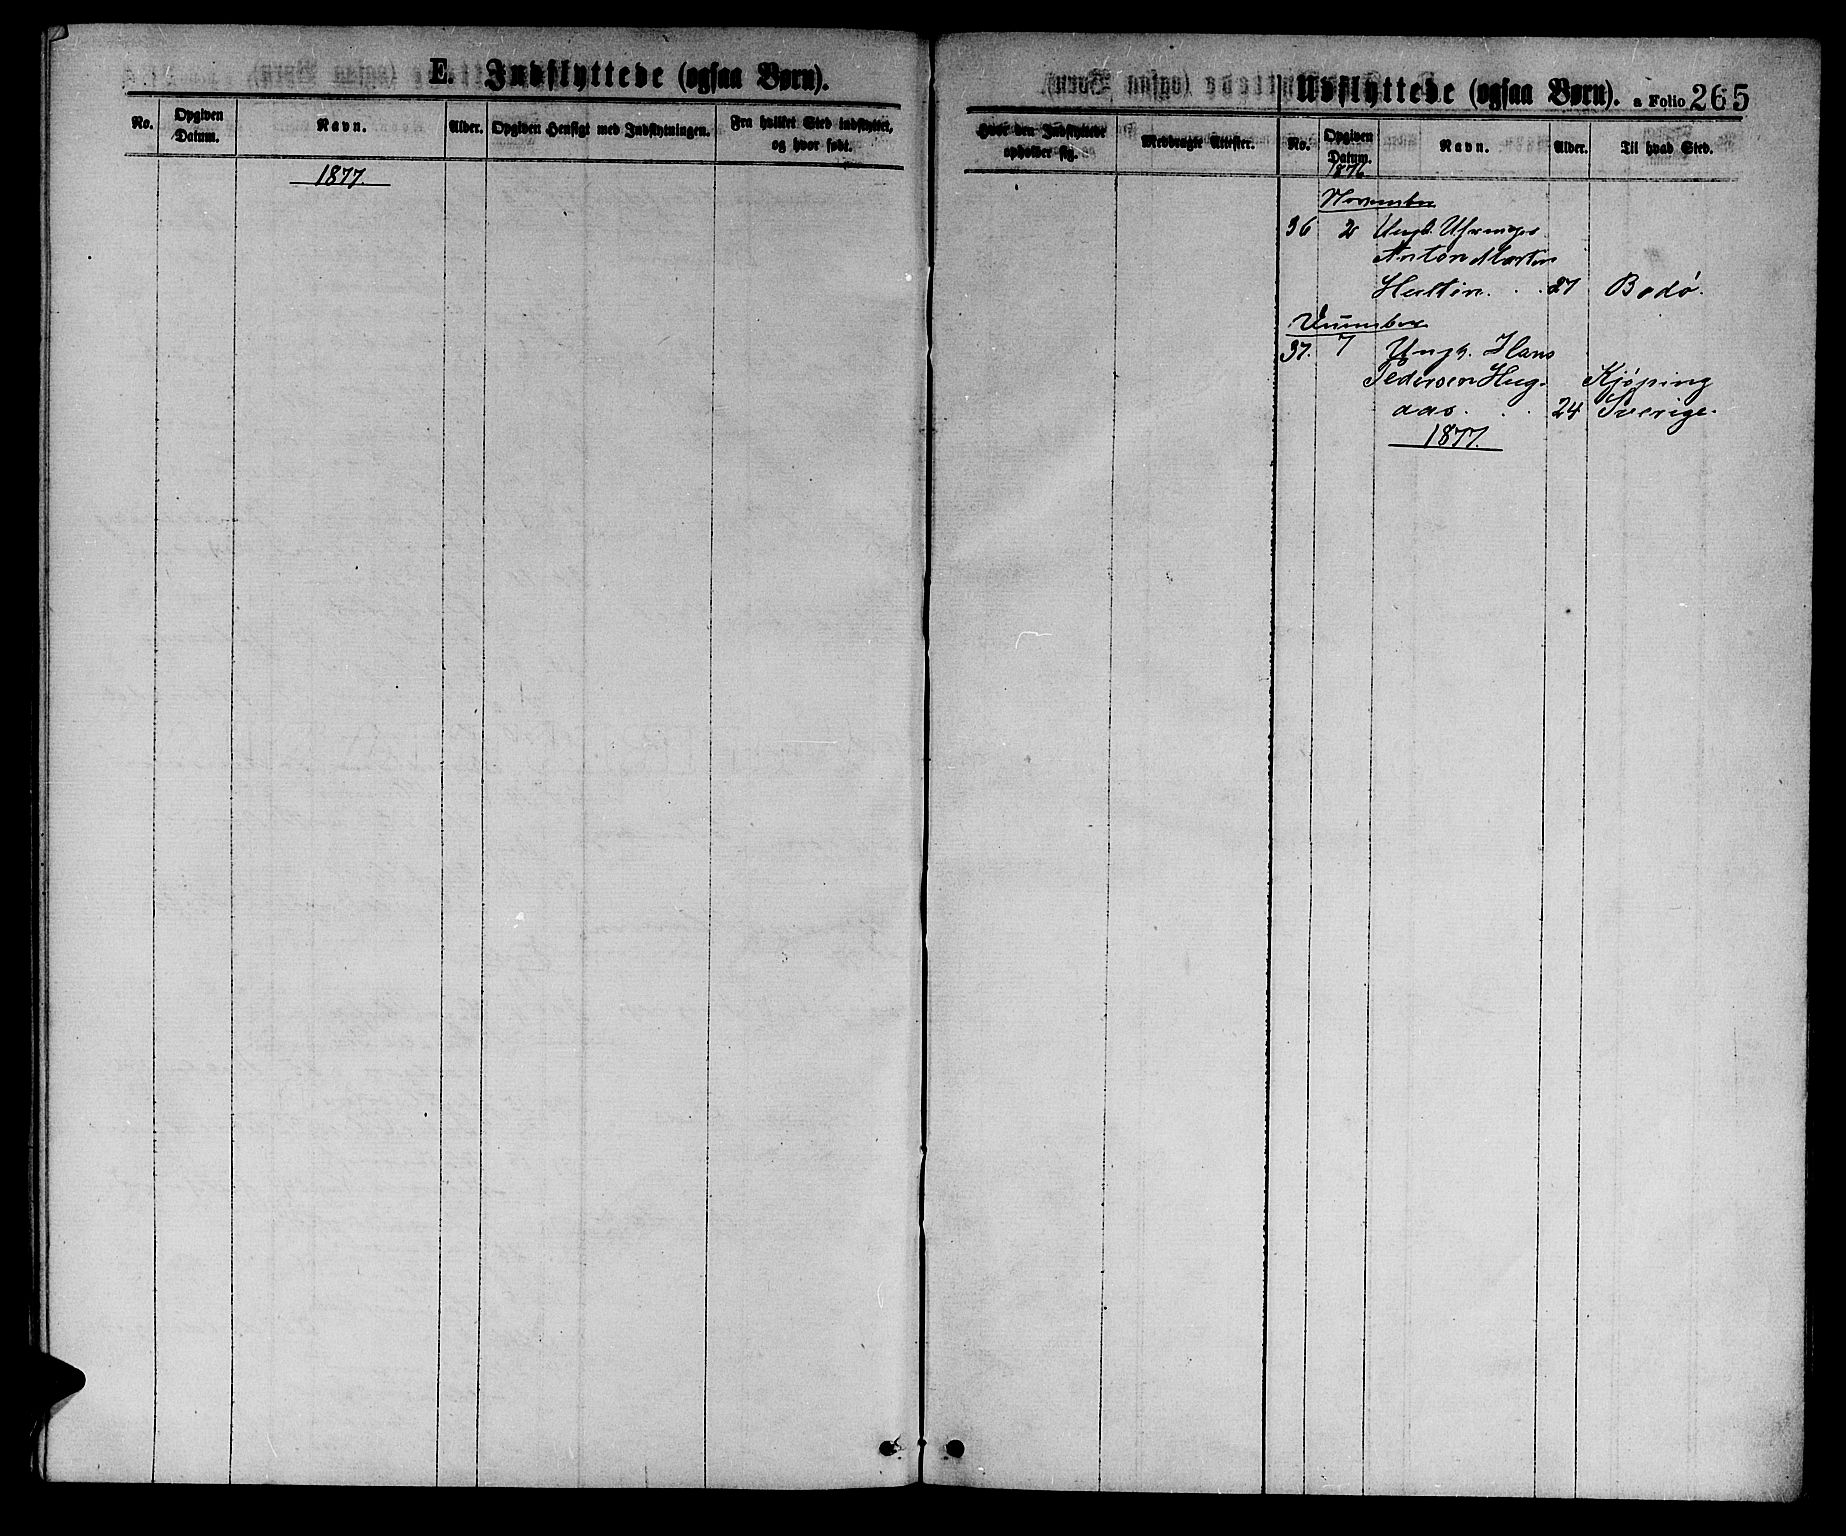 E. Indflyttede (ogsaa Børn).
No.
Opgiven Datum.
Navn.
Alder.
Opgiven Hensigt med Indflytningen.
Fra hvilket Sted indflyttet, og hvor født.
1877.
Udflyttede (ogsaa Børn). a Folio 265
Hvor den Indflyttede opholder sig.
Medbragte Attester.
No.
Opgiven Datum.
Navn.
Alder.
Til hvad Sted.
1876
November
36 2 Ungk.
Anton Martin
Hultin. . . 27 Bodø.
37. 7 Ungk. Hans
Pedersen Hug- Kjøping
aas. . . 24 Sverige.
1877.